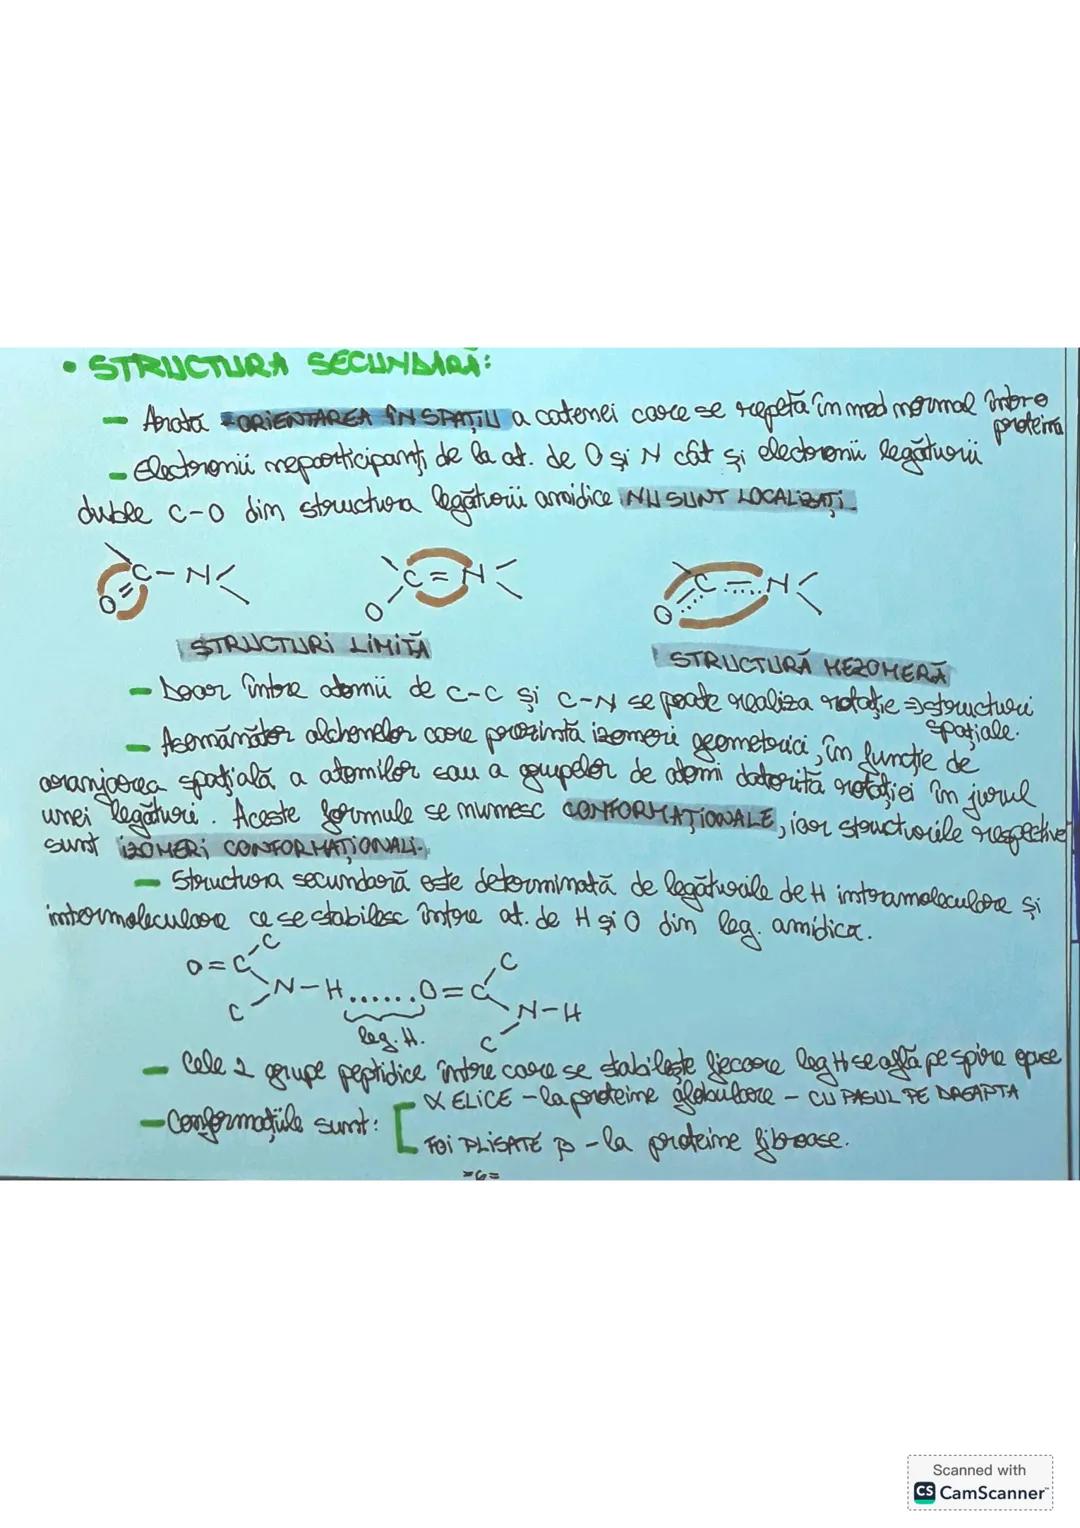 • STRUCTURA SECUNDARĂ:
- Arată ORIENTAREA ÎN SPAȚIU a catenei care se repetă în mod normal într-o
proteină
- Electronii neparticipanți de la at. de O și N cât și electronii legăturii
duble C-O din structura legăturii amidice NU SUNT LOCALIZAȚI
C-N
O
C=N
O
C N
O
STRUCTURI LIMITĂ
STRUCTURĂ MEZOMERĂ
- Doar între atomii de C-C și C-N se poate realiza rotație => structuri
spațiale.
- Asemănător alchenelor care prezintă izomeri geometrici, în funcție de
aranjarea spațială a atomilor sau a grupelor de atomi datorită rotației în jurul
unei legături. Aceste formule se numesc CONFORMAȚIONALE, iar structurile respective
sunt IZOMERI CONFORMAȚIONALI.
- Structura secundară este determinată de legăturile de H intramoleculare și
intermoleculare ce se stabilesc între at. de H și O din leg. amidică.
C C
O=C N-H......O=C N-H
C leg. H. C
- Cele 2 grupe peptidice între care se stabilește fiecare leg H se află pe spire opuse
- Conformațiile sunt: α ELICE - la proteine globulare - CU PASUL PE DREAPTA
FOI PLISATE β - la proteine fibroase.
=6=
Scanned with
CS CamScanner